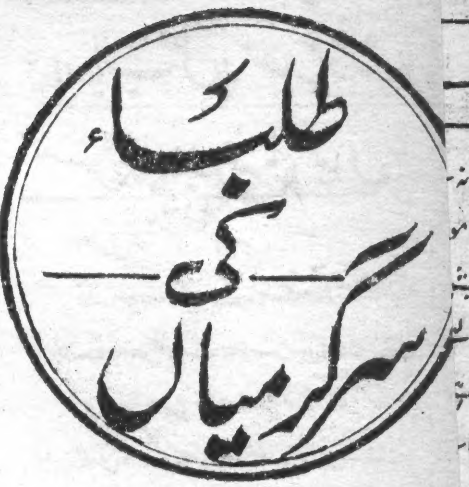 طلباء
کی
سرگرمیاں